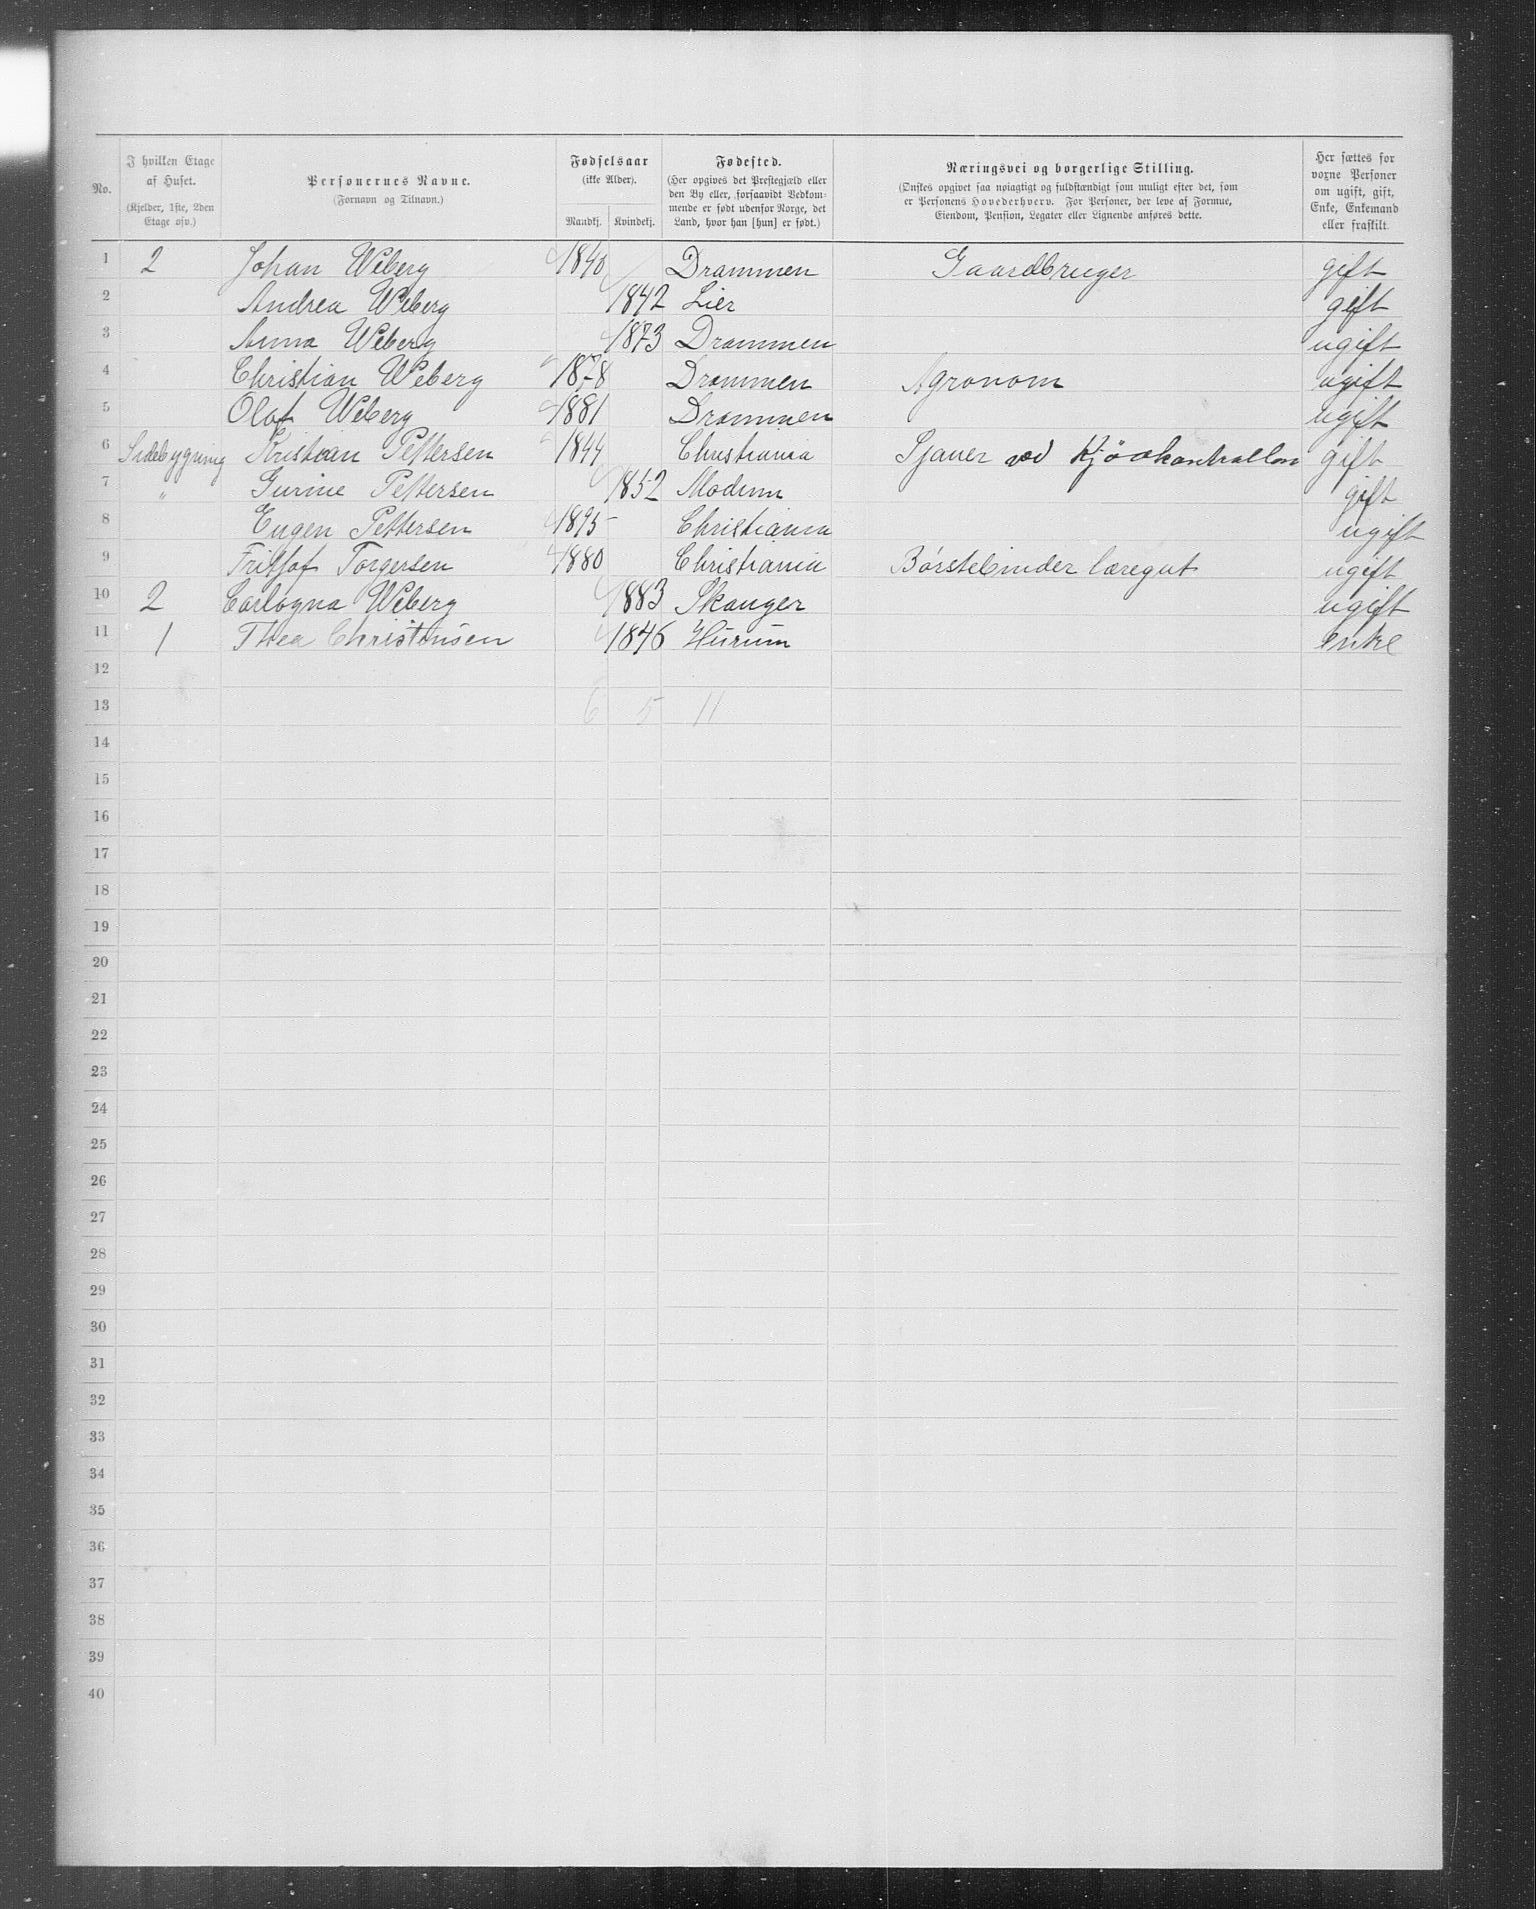 No.
I hvilken Etage af Huset. (Kjelder, 1ste, 2den Etage osv.)
Personernes Navne. (Fornavn og Tilnavn.)
Fødselsaar (ikke Alder). Mandkj. Kvindekj.
Fødested. (Her opgives det Prestegjæld eller den By eller, forsaavidt Vedkommende er født udenfor Norge, det Land, hvor han [hun] er født.)
Næringsvei og borgerlige Stilling. (Ønskes opgivet saa nøiagtigt og fuldstændigt som muligt efter det, som er Personens Hovederhverv. For Personer, der leve af Formue, Eiendom, Pension, Legater eller Lignende anføres dette.
Her sættes for voxne Personer om ugift, gift, Enke, Enkemand eller fraskilt.
1 2 Johan Weberg 1840 Drammen Gaardbruger gift
2 Andrea Weberg 1842 Lier gift
3 Anna Weberg 1873 Drammen ugift
4 Christian Weberg 1878 Drammen Agronom ugift
5 Olaf Weberg 1881 Drammen ugift
6 Sidebygning Kristian Pettersen 1844 Christiania Sjauer ved gift
7 " Gurine Pettersen 1852 Modum gift
8 Eugen Pettersen 1895 Christiania ugift
9 Fritjof Torgersen 1880 Christiania Børstebinder læregut ugift
10 2 Weberg 1883 Skauger ugift
11 1 Thea Christensen 1846 Hurum enke
12
13 6 5 11
14
15
16
17
18
19
20
21
22
23
24
25
26
27
28
29
30
31
32
33
34
35
36
37
38
39
40